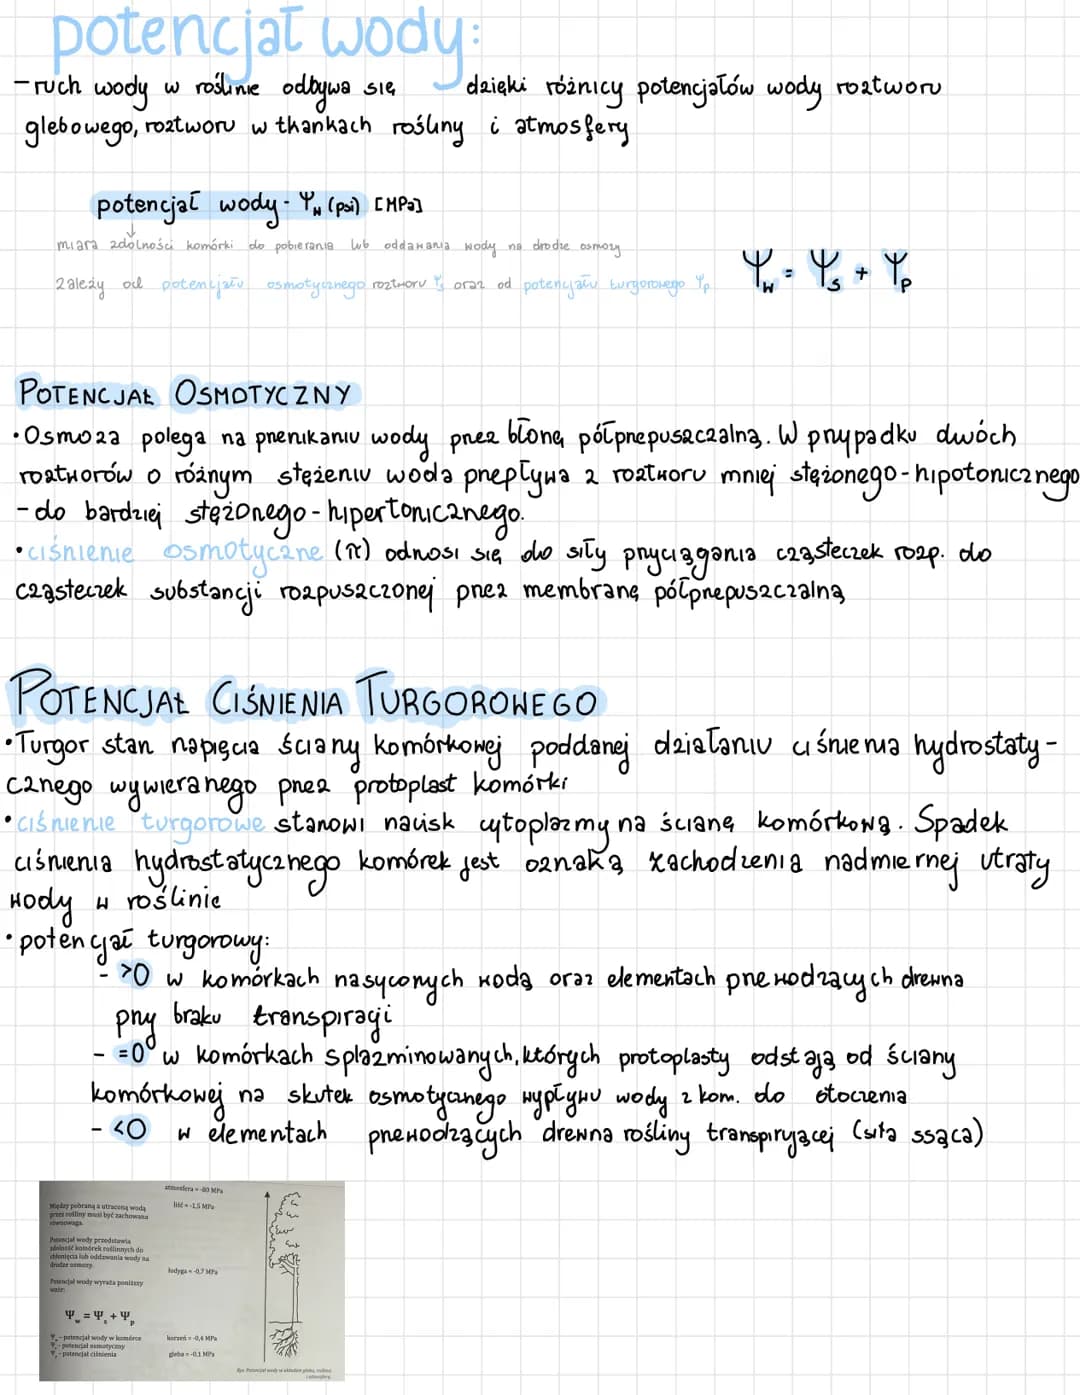 potencjał wody:
- ruch wody w roślinie odbywa się dzięki różnicy potencjałów wody roztworu
glebowego, roztworu w tkankach rośliny i atmosfery
potencjał wody - Ψw (psi) [MPa]
miara zdolności komórki do pobierania lub oddawania wody na drodze osmozy
zależy od potencjału osmotycznego roztworu Ψs oraz od potencjału turgorowego Ψp
Ψw = Ψs + Ψp
POTENCJAŁ OSMOTYCZNY
• Osmoza polega na przenikaniu wody przez błonę półprzepuszczalną. W przypadku dwóch
roztworów o różnym stężeniu woda przepływa z roztworu mniej stężonego - hipotonicznego
- do bardziej stężonego - hipertonicznego.
• ciśnienie osmotyczne (π) odnosi się do siły przyciągania cząsteczek rozp. do
cząsteczek substancji rozpuszczonej przez membranę półprzepuszczalną
POTENCJAŁ CIŚNIENIA TURGOROWEGO
• Turgor stan napięcia ściany komórkowej poddanej działaniu ciśnienia hydrostaty-
cznego wywieranego przez protoplast komórki
• ciśnienie turgorowe stanowi nacisk cytoplazmy na ścianę komórkową. Spadek
ciśnienia hydrostatycznego komórek jest oznaką zachodzenia nadmiernej utraty
wody w roślinie
• potencjał turgorowy:
- >0 w komórkach nasyconych wodą oraz elementach przewodzących drewna
przy braku transpiracji
- =0 w komórkach splazminowanych, których protoplasty odstają od ściany
komórkowej na skutek osmotycznego wypływu wody z kom. do otoczenia
- <0 w elementach przewodzących drewna rośliny transpirującej (siła ssąca)
atmosfera = -80 MPa
liść = -1,5 MPa
Między pobraną a utraconą wodą
przez rośliny musi być zachowana
równowaga.
Potencjał wody przedstawia
zdolność komórek roślinnych do
chłonięcia lub oddawania wody na
drodze osmozy.
łodyga = -0,7 MPa
Potencjał wody wyraża poniższy
wzór:
Ψw = Ψs + Ψp
Ψw - potencjał wody w komórce
Ψs - potencjał osmotyczny
Ψp - potencjał ciśnienia
korzeń = -0,4 MPa
gleba = -0,1 MPa
Rys. Potencjał wody w układzie gleba, roślina
i atmosfera.